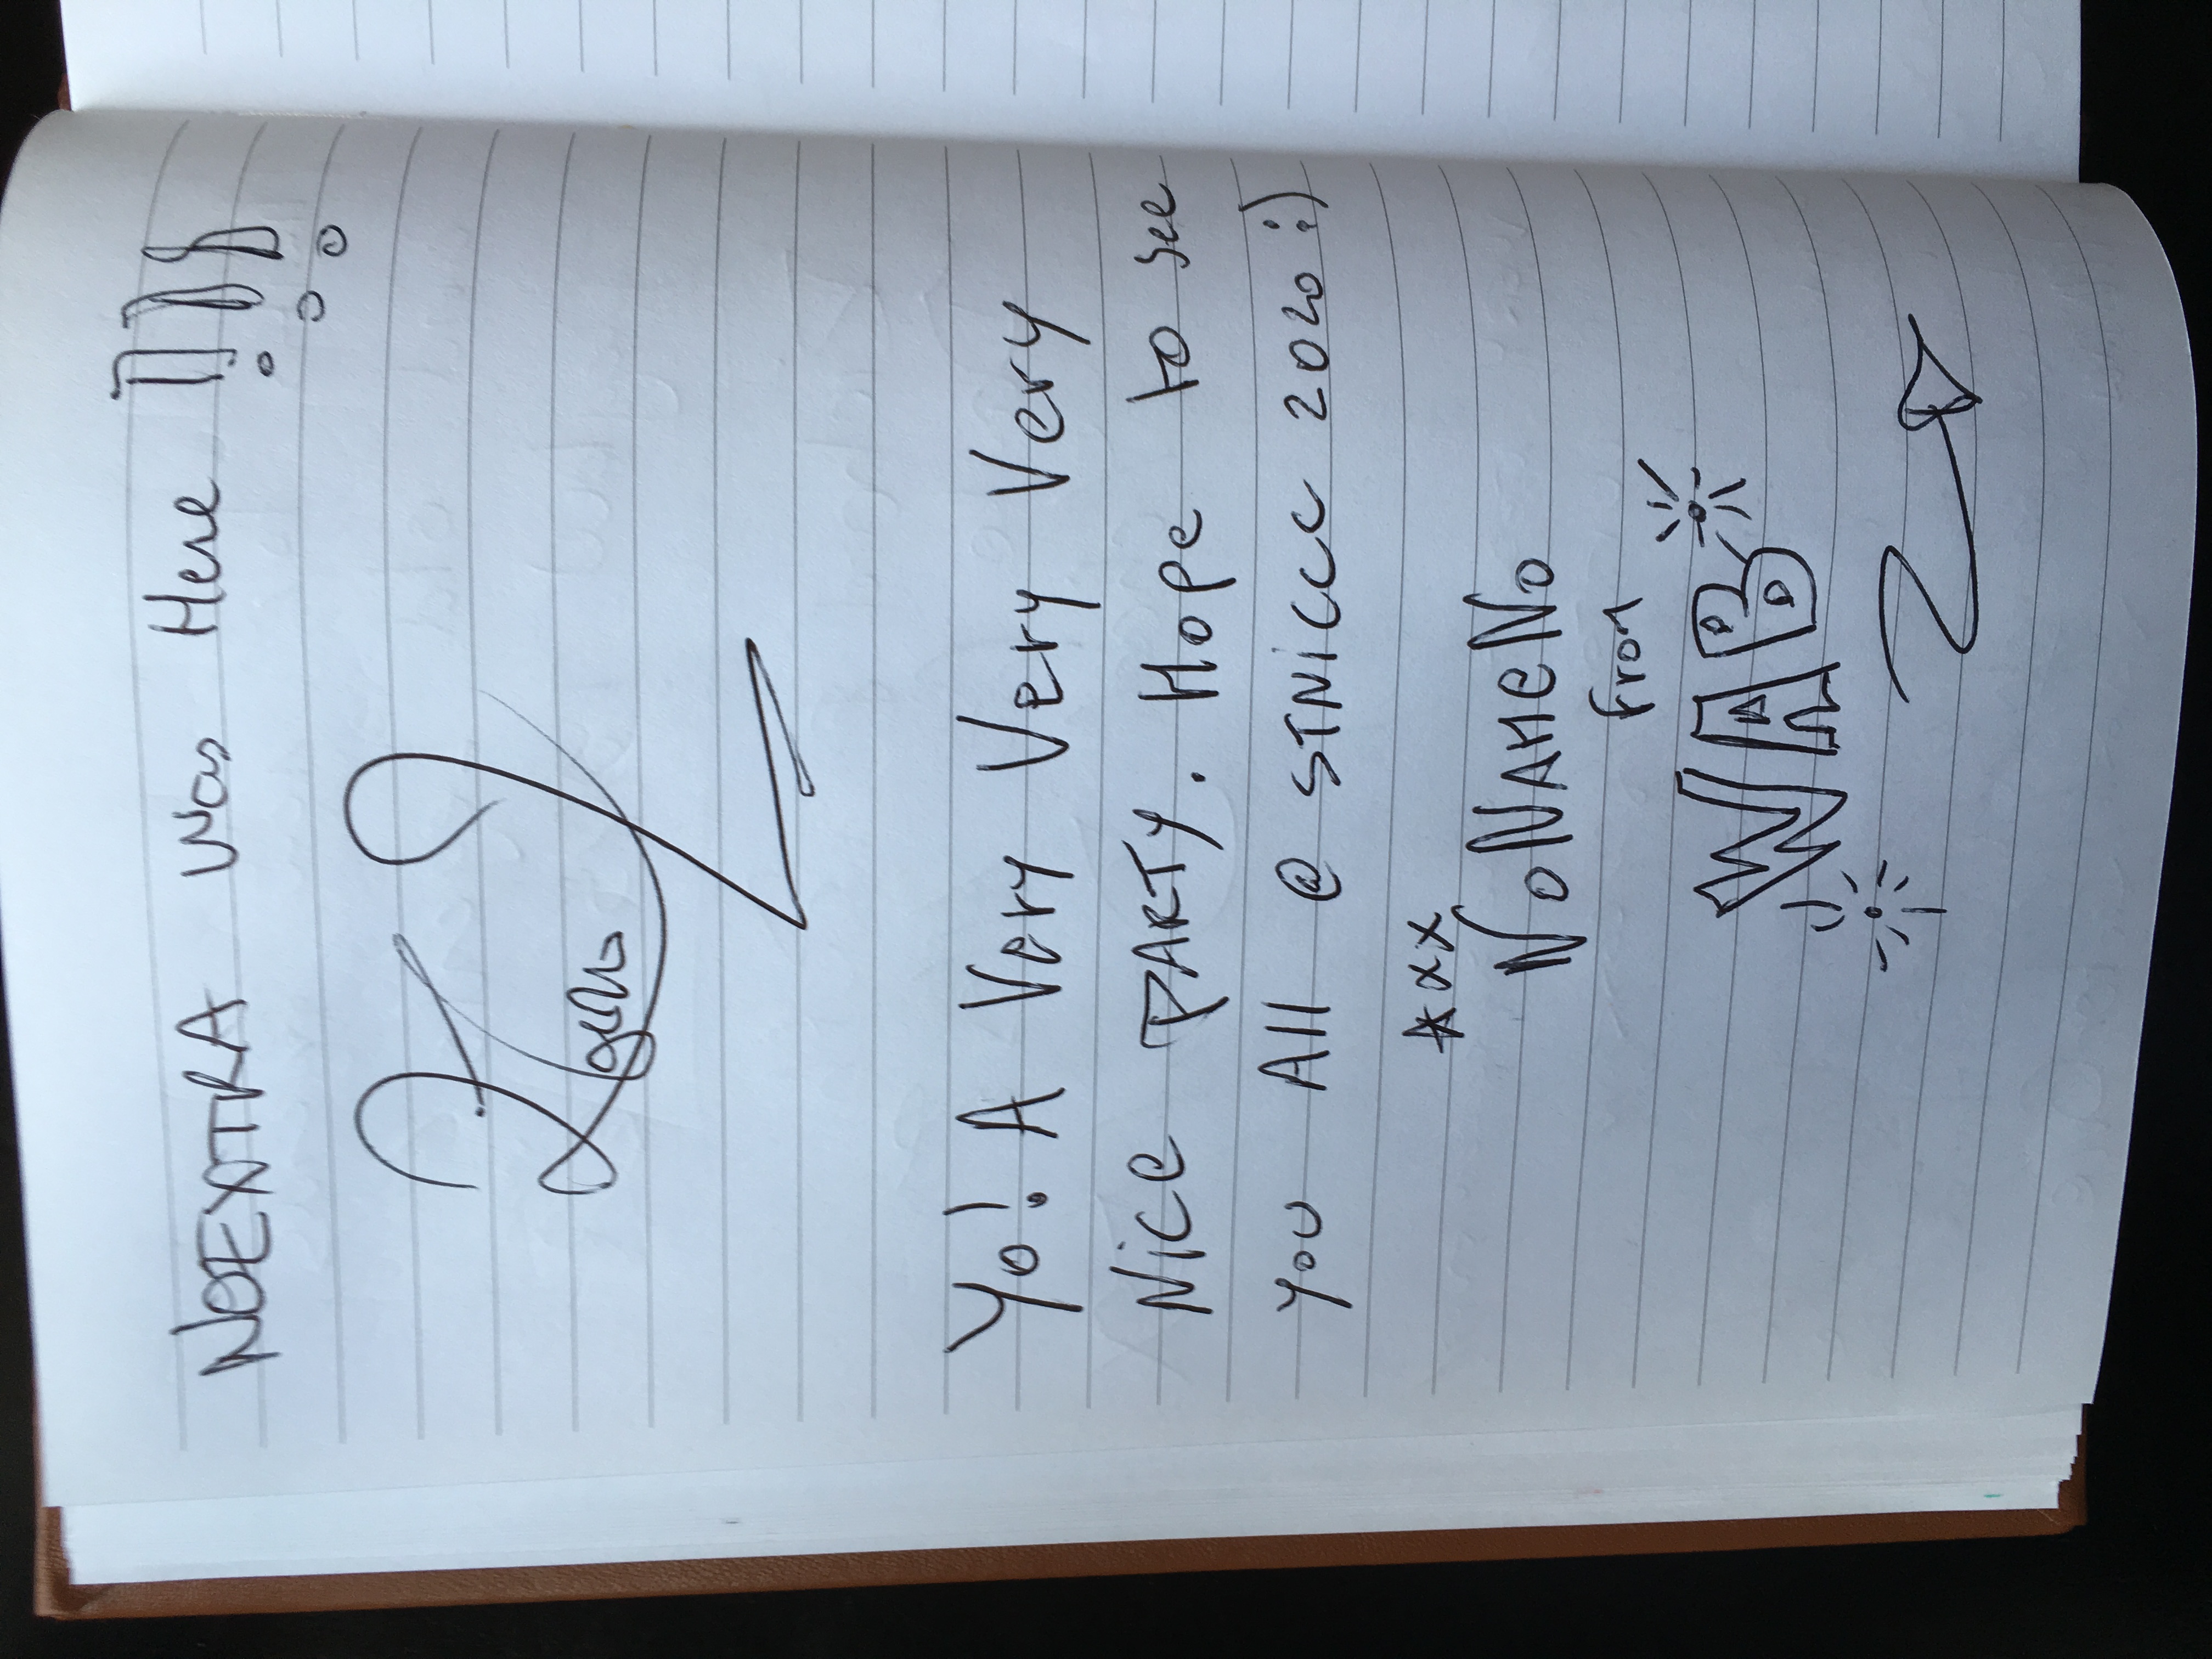 NOEXTRA Was Here !!!
Yo! A Very Very Very
Nice PARTY. Hope to see
you All @ STNICCC 2020 :)
xxx
NoNameNo
from
WAB